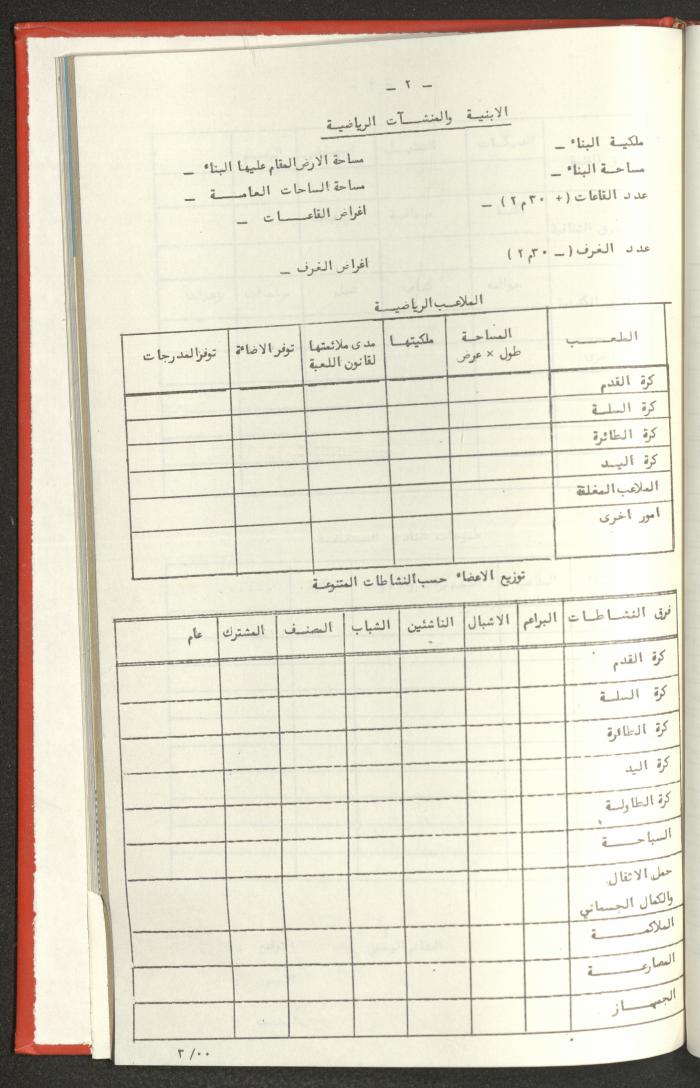 - ٢ -
الابنية والمنشآت الرياضية
ملكية البناء -
مساحة البناء - مساحة الارض المقام عليها البناء -
عدد القاعات (+ ٣٠م٢) - مساحة الساحات العامة -
اغراض القاعات -
عدد الغرف (- ٣٠م٢) اغراض الغرف -
الملاعب الرياضية
الملعب المساحة طول × عرض ملكيتها مدى ملائمتها لقانون اللعبة توفر الاضائة توفر المدرجات
كرة القدم
كرة السلة
كرة الطائرة
كرة اليد
الملاعب المغلقة
امور اخرى
توزيع الاعضاء حسب النشاطات المتنوعة
فرق النشاطات البراعم الاشبال الناشئين الشباب المصنف المشترك عام
كرة القدم
كرة السلة
كرة الطائرة
كرة اليد
كرة الطاولة
السباحة
حمل الاثقال
والكمال الجسماني
الملاكمة
المصارعة
الجمباز
٣/٠٠